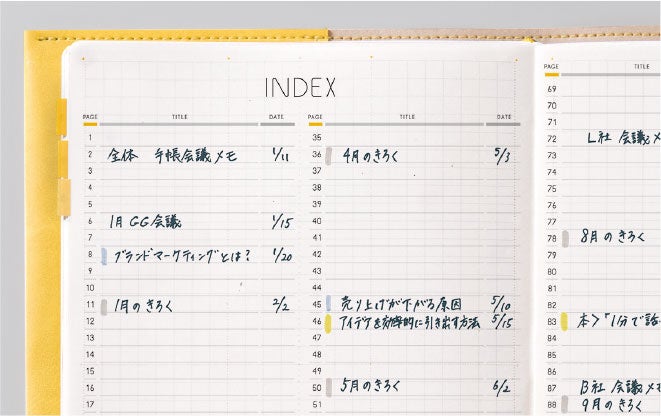 INDEX
PAGE TITLE DATE
1
2 全体 手帳会議メモ 1/11
3
4
5
6 1月GG会議 1/15
7
8 ブランドマーケティングとは? 1/20
9
10
11 1月のきろく 2/2
12
13
14
15
16
17
PAGE TITLE DATE
35
36 4月のきろく 5/3
37
38
39
40
41
42
43
44
45 売り上げが下がる原因 5/10
46 アイデアを効率的に引き出す方法 5/15
47
48
49
50 5月のきろく 6/2
51
PAGE TITLE
69
70
71
72 L社 会議メモ
73
74
75
76
77
78 8月のきろく
79
80
81
82
83 本>「1分で話
84
85
86
87 B社 会議メモ
88 9月のきろく